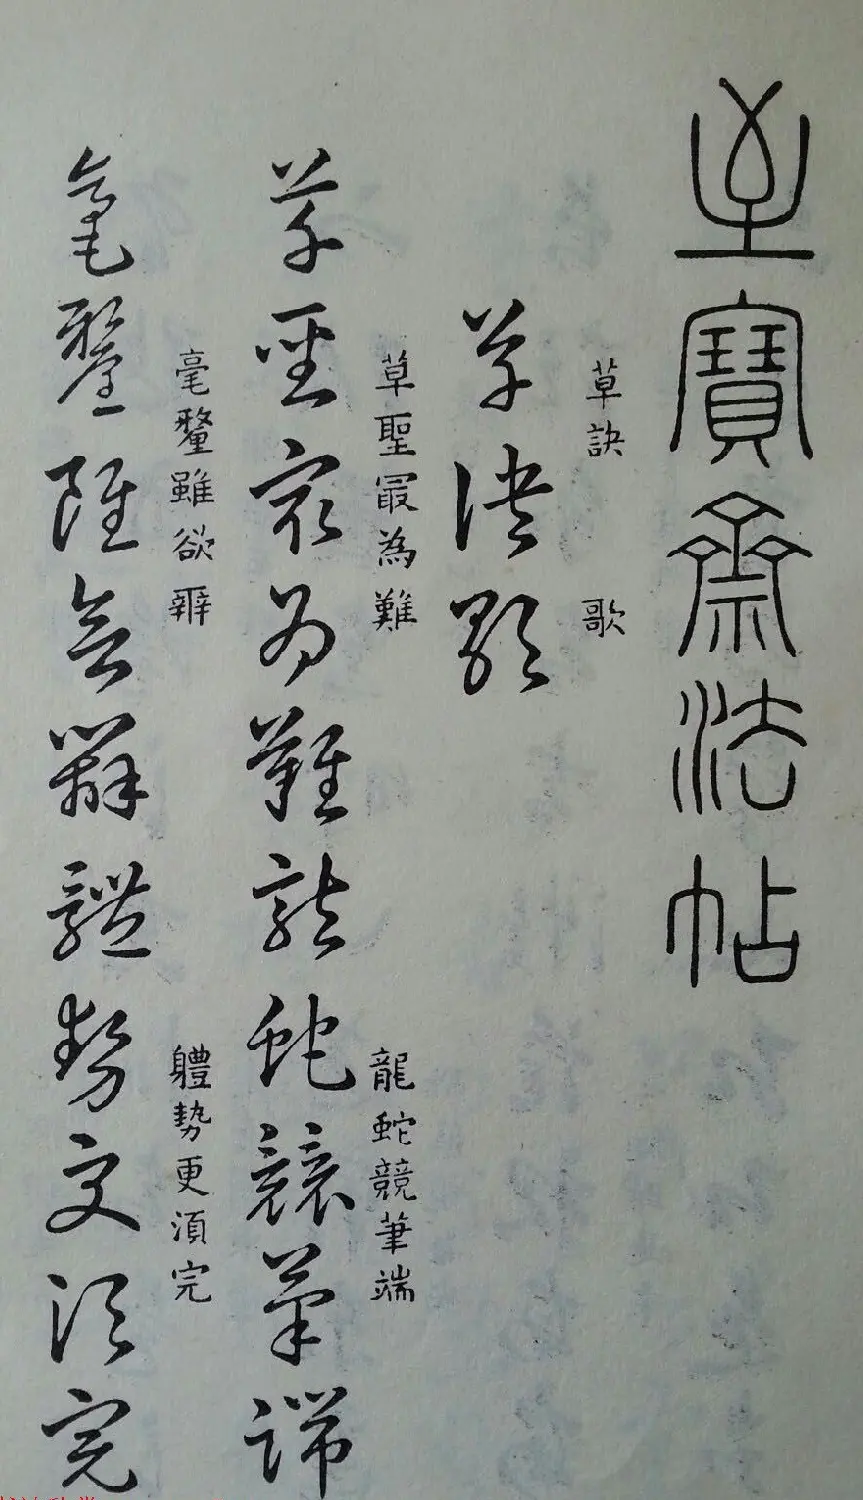 至寶齋法帖
草訣歌
草訣 歌
草聖最為難龍蛇競筆端
草聖冣為難 龍蛇競筆端
毫釐雖欲辨體勢更須完
毫釐雖欲辨 軆勢更須完